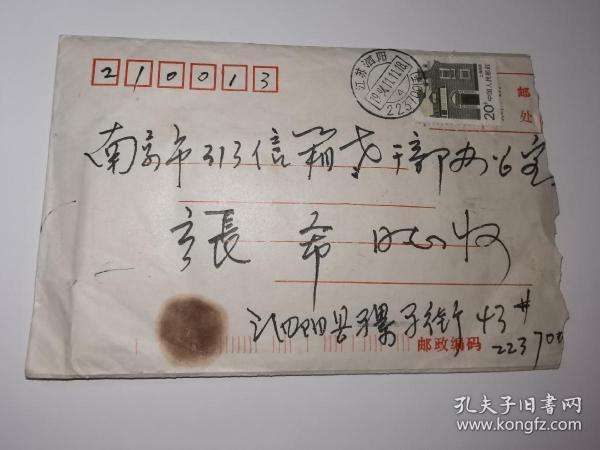 210013
江苏泗阳
223700
20分
中国人民邮政
邮
处
南京市313信箱老干部办公室
张 希 收
泗阳县骡子街43#
邮政编码 223700
孔夫子旧书网
www.kongfz.com